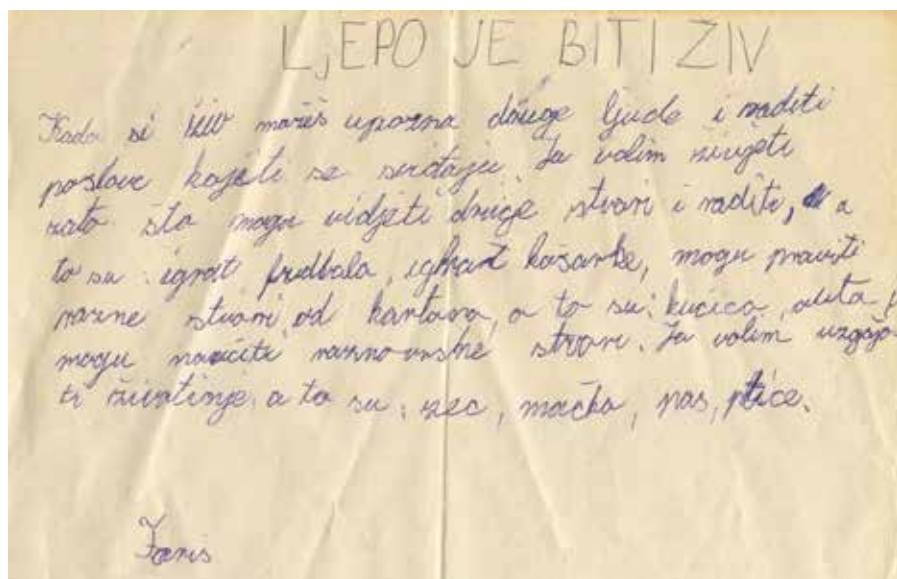 LJEPO JE BITI ZIV
Kada si živ možeš upozna druge ljude i raditi
poslove koje ti se sviđaju. Ja volim živjeti
zato što mogu vidjeti druge stvari i raditi, a
to su: igrat fudbala, igrat košarke, mogu praviti
razne stvari od kartona, a to su: kućica, auta,
mogu naučiti raznovrsne stvari. Ja volim uzgaja-
ti životinje a to su: zec, mačka, pas, ptice.